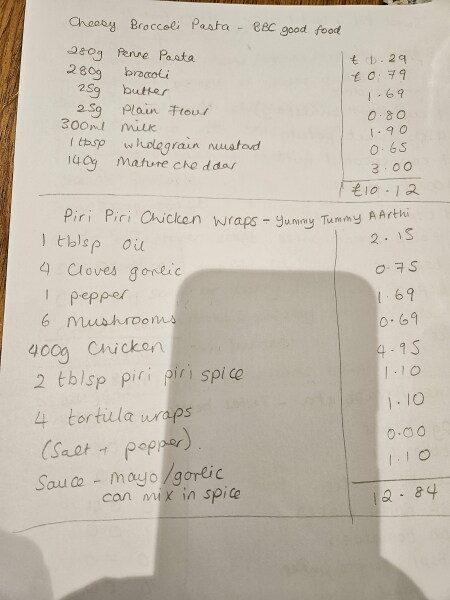 Cheesy Broccoli Pasta - BBC good food
280g Penne Pasta £1.29
280g broccoli £0.79
25g butter 1.69
25g Plain Flour 0.80
300ml Milk 1.90
1 tbsp wholegrain mustard 0.65
140g Mature cheddar 3.00
£10.12
Piri Piri Chicken Wraps - Yummy Tummy AArthi
1 tblsp oil 2.15
4 Cloves garlic 0.75
1 pepper 1.69
6 Mushrooms 0.69
400g Chicken 4.95
2 tblsp piri piri spice 1.10
4 tortilla wraps 1.10
(Salt + pepper). 0.00
Sauce - mayo/garlic 1.10
can mix in spice
12.84